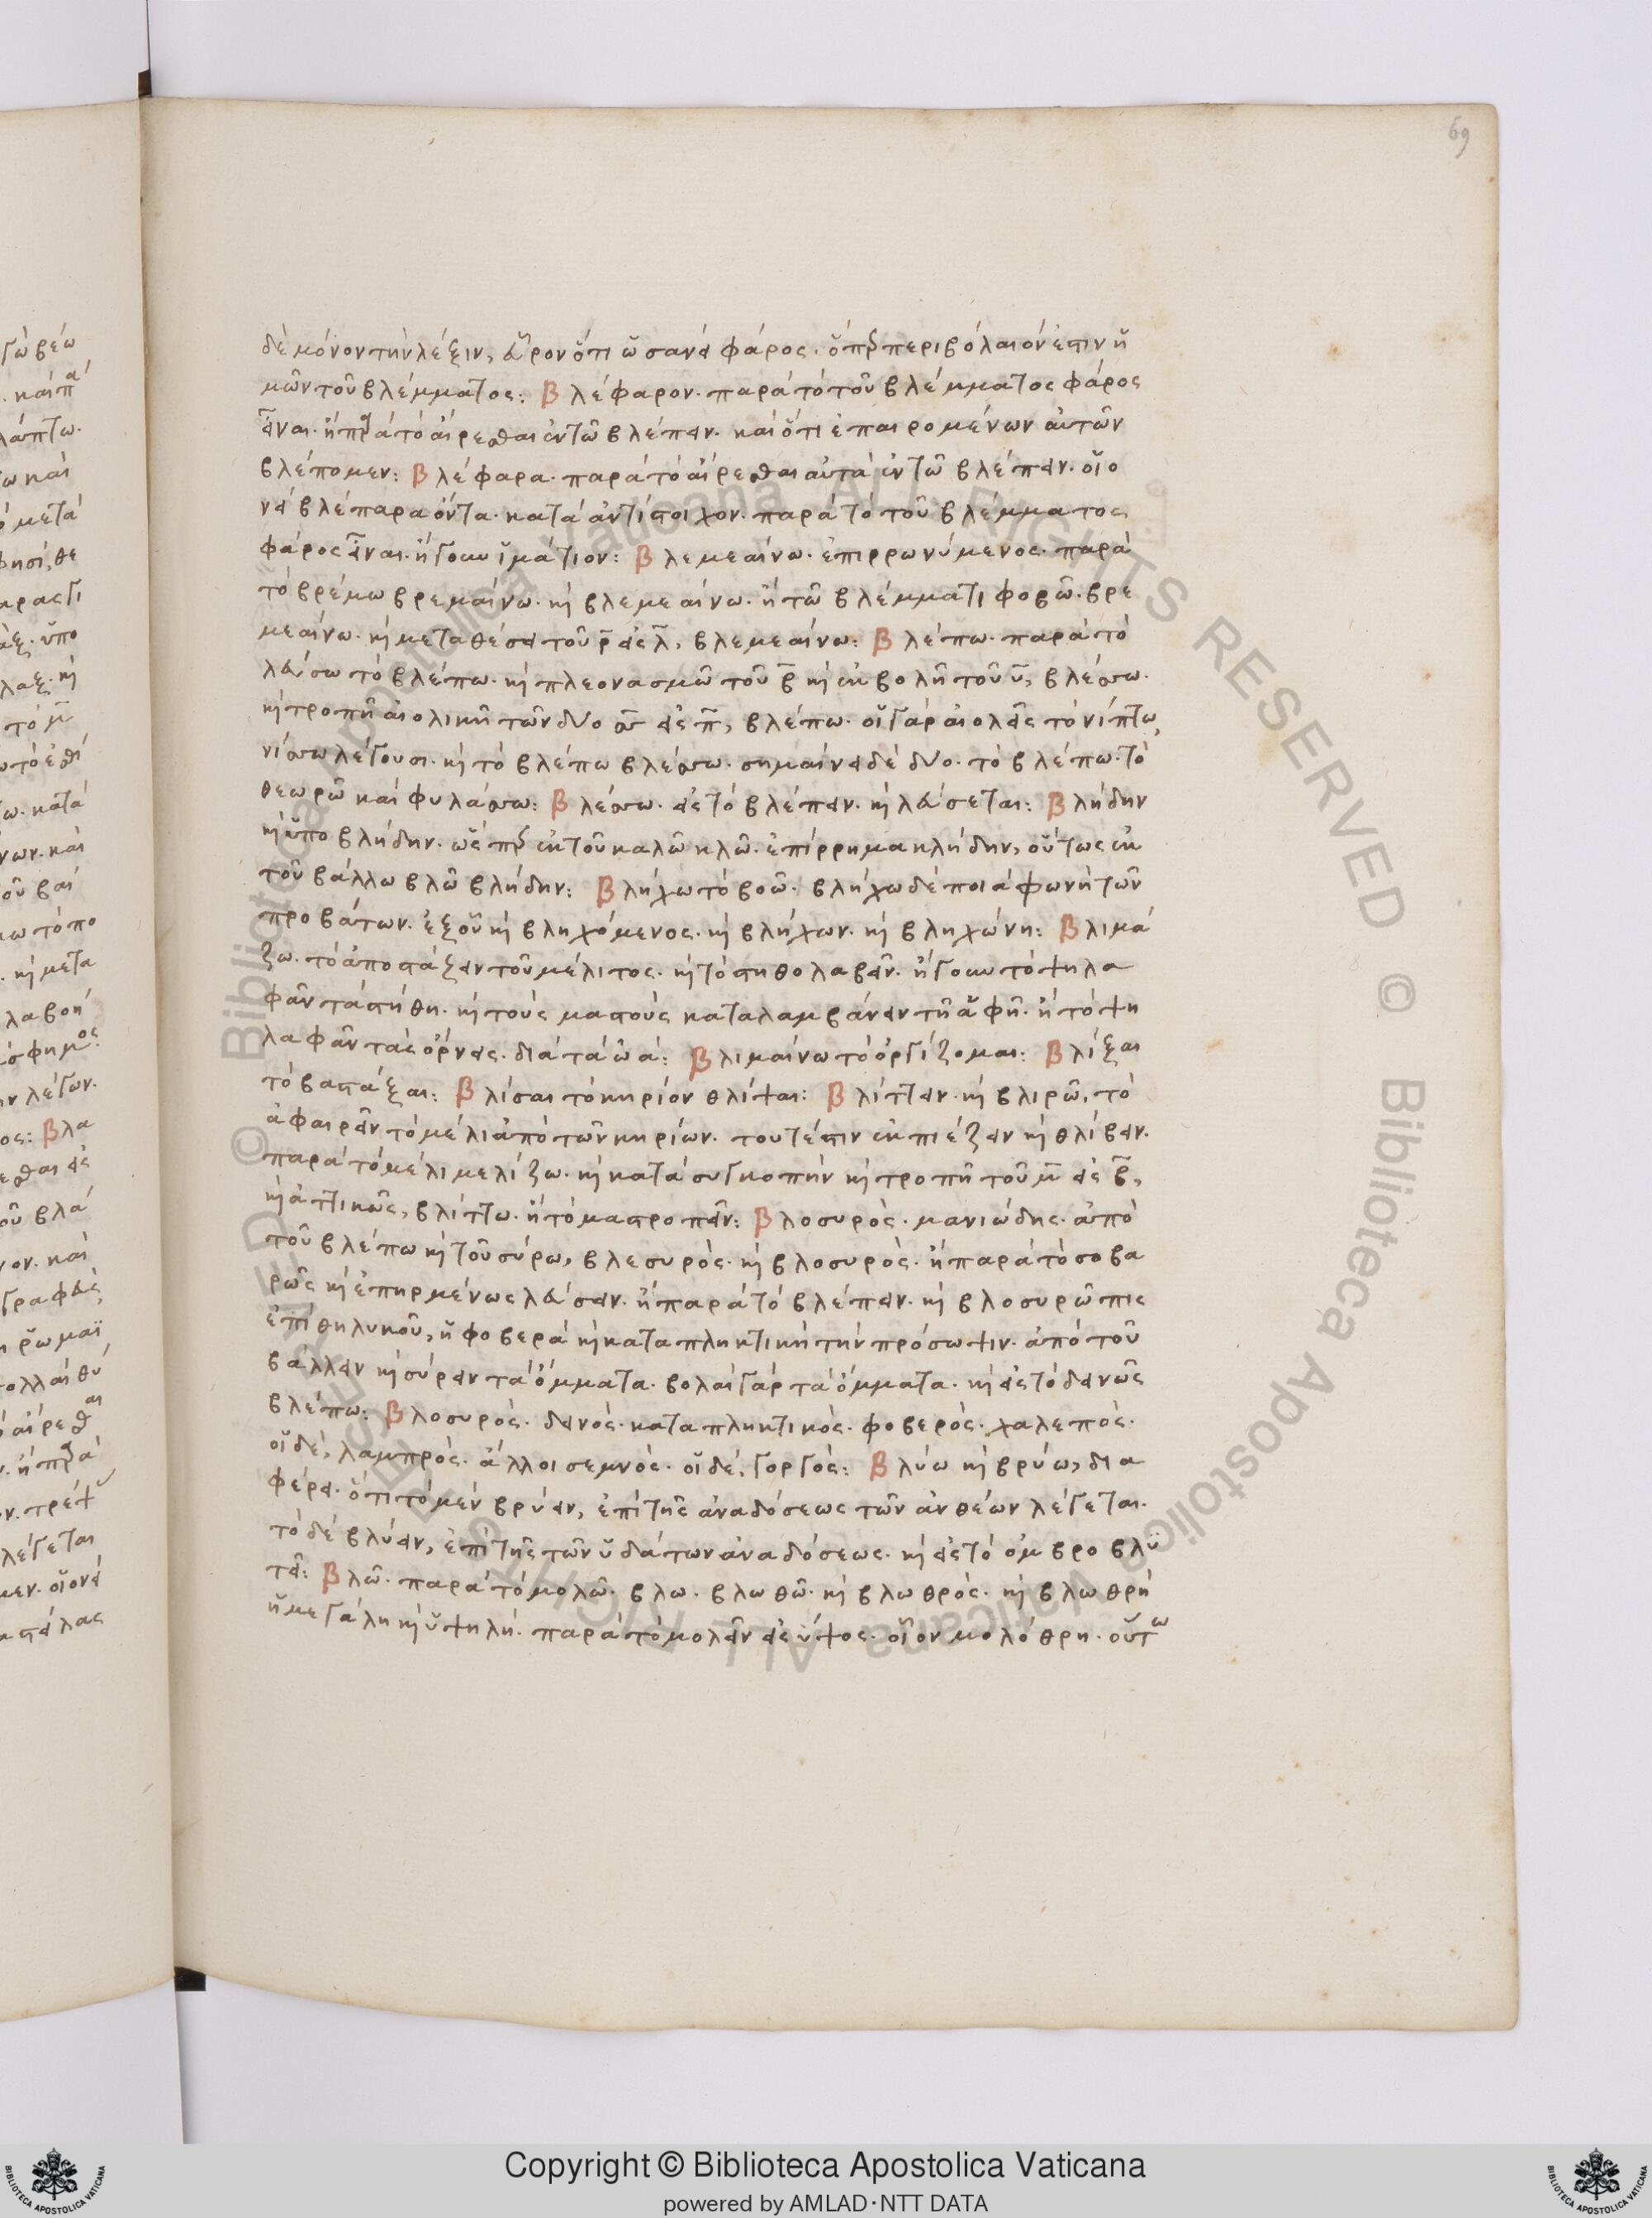 69
δὲ μόνον τὴν λέξιν, εὗρον ὅτι ὡσανεὶ φάρος. ὅπερ περιβόλαιόν ἐστιν ἡ
μῶν τοῦ βλέμματος: Βλέφαρον. παρὰ τὸ τοῦ βλέμματος φάρος
εἶναι. ἢ παρὰ τὸ αἴρεσθαι ἐν τῶ βλέπειν. καὶ ὅτι ἐπαιρομένων αὐτῶν
βλέπομεν: Βλέφαρα. παρὰ τὸ αἴρεσθαι αὐτὰ ἐν τῶ βλέπειν. οἷο
νεὶ βλέπαρα ὄντα. κατὰ ἀντίστοιχον. παρὰ τὸ τοῦ βλέμματος
φάρος εἶναι. ἤγουν ἱμάτιον: Βλεμεαίνω. ἐπιρρωνύμενος. παρὰ
τὸ βρέμω βρεμαίνω. καὶ βλεμεαίνω. ἢ τῶ βλέμματι φοβῶ. βρε
μεαίνω. καὶ μεταθέσει τοῦ ρ εἰς λ, βλεμεαίνω: Βλέπω. παρὰ τὸ
λεύσω τὸ βλέπω. καὶ πλεονασμῶ τοῦ β καὶ ἐκβολῆ τοῦ υ, βλέσσω.
καὶ τροπῆ αἰολικῆ τῶν δύο σσ εἰς π, βλέπω. οἱ γὰρ αἰολεῖς τὸ νίπτω,
νίσσω λέγουσι. καὶ τὸ βλέπω βλέσσω. σημαίνει δὲ δύο. τὸ βλέπω. τὸ
θεωρῶ καὶ φυλάσσω: Βλέσσω. εἰς τὸ βλέπειν. καὶ λεύσεται: Βλήδην
καὶ ὑποβλήδην. ὥσπερ ἐκ τοῦ καλῶ κλῶ. ἐπίρρημα κλήδην, οὕτως ἐκ
τοῦ βάλλω βλῶ βλήδην: Βλήχω τὸ βοῶ. βλήχω δὲ ποιὰ φωνὴ τῶν
προβάτων. ἐξ οὗ καὶ βληχόμενος. καὶ βλήχων. καὶ βληχώνη: Βλιμά
ζω. τὸ ἀποστάζειν τοῦ μέλιτος. καὶ τὸ στηθολαβεῖν. ἤγουν τὸ ψηλα
φᾶν τὰ στήθη. καὶ τοὺς μαστοὺς καταλαμβάνειν τῆ ἁφῆ. ἢ τὸ ψη
λαφᾶν τὰς ὄρνεις. διὰ τὰ ὠά: Βλιμαίνω τὸ ὀργίζομαι: Βλίξαι
τὸ βαστάξαι: Βλίσαι τὸ κηρίον θλίψαι: Βλίττειν. καὶ βλιρῶ. τὸ
ἀφαιρεῖν τὸ μέλι ἀπὸ τῶν κηρίων. τουτέστιν ἐκπιέζειν καὶ θλίβειν.
παρὰ τὸ μέλι μελίζω. καὶ κατὰ συγκοπὴν καὶ τροπῆ τοῦ μ εἰς β,
καὶ ἀττικῶς, βλίττω. ἢ τὸ μαστροπεῖν: Βλοσυρὸς. μανιώδης. ἀπὸ
τοῦ βλέπω καὶ τοῦ σύρω, βλεσυρὸς. καὶ βλοσυρὸς. ἢ παρὰ τὸ σοβα
ρῶς καὶ ἐπηρμένως λεύσειν. ἢ παρὰ τὸ βλέπειν. καὶ βλοσυρῶπις
ἐπὶ θηλυκοῦ, ἡ φοβερὰ καὶ καταπληκτικὴ τὴν πρόσωψιν. ἀπὸ τοῦ
βάλλειν καὶ σύρειν τὰ ὄμματα. βολαὶ γὰρ τὰ ὄμματα. καὶ εἰς τὸ δεινῶς
βλέπω: Βλοσυρὸς. δεινὸς. καταπληκτικὸς. φοβερὸς. χαλεπὸς.
οἱ δὲ, λαμπρὸς. ἄλλοι σεμνὸς. οἱ δὲ, γοργὸς: Βλύω καὶ βρύω, δια
φέρει. ὅτι τὸ μὲν βρύειν, ἐπὶ τῆς ἀναδόσεως τῶν ἀνθέων λέγεται.
τὸ δὲ βλύειν, ἐπὶ τῆς τῶν ὑδάτων ἀναδόσεως. καὶ εἰς τὸ ὀμβροβλυ
τεῖ: Βλῶ. παρὰ τὸ μολῶ. βλω. βλωθῶ. καὶ βλωθρὸς. καὶ βλωθρὴ
ἡ μεγάλη καὶ ὑψηλή. παρὰ τὸ μολεῖν εἰς ὕψος. οἷον μολόθρη. οὕτω
Copyright © Biblioteca Apostolica Vaticana
powered by AMLAD·NTT DATA